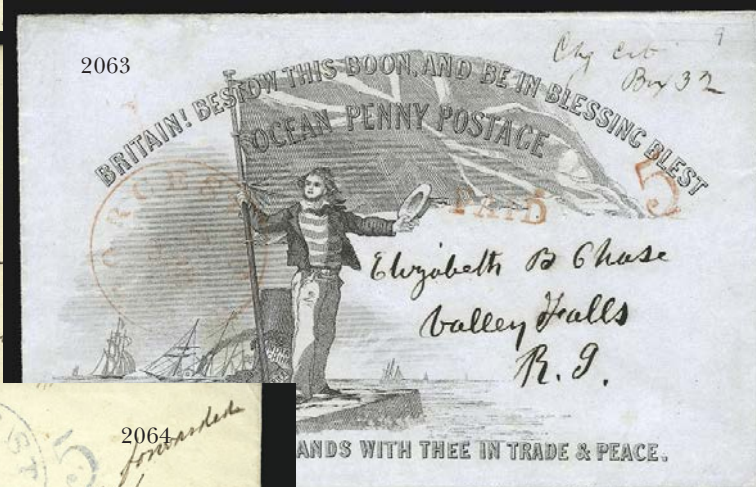 2063
9
Chg
Box 32
BRITAIN! BESTOW THIS BOON, AND BE IN BLESSING BLEST
OCEAN PENNY POSTAGE
PAID 5
Elizabeth B Chase
Valley Falls
R. I.
ANDS WITH THEE IN TRADE & PEACE.
2064
forwarded
ST